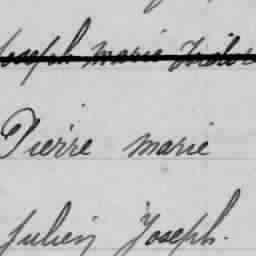 Joseph marie
Pierre marie
Julien Joseph.